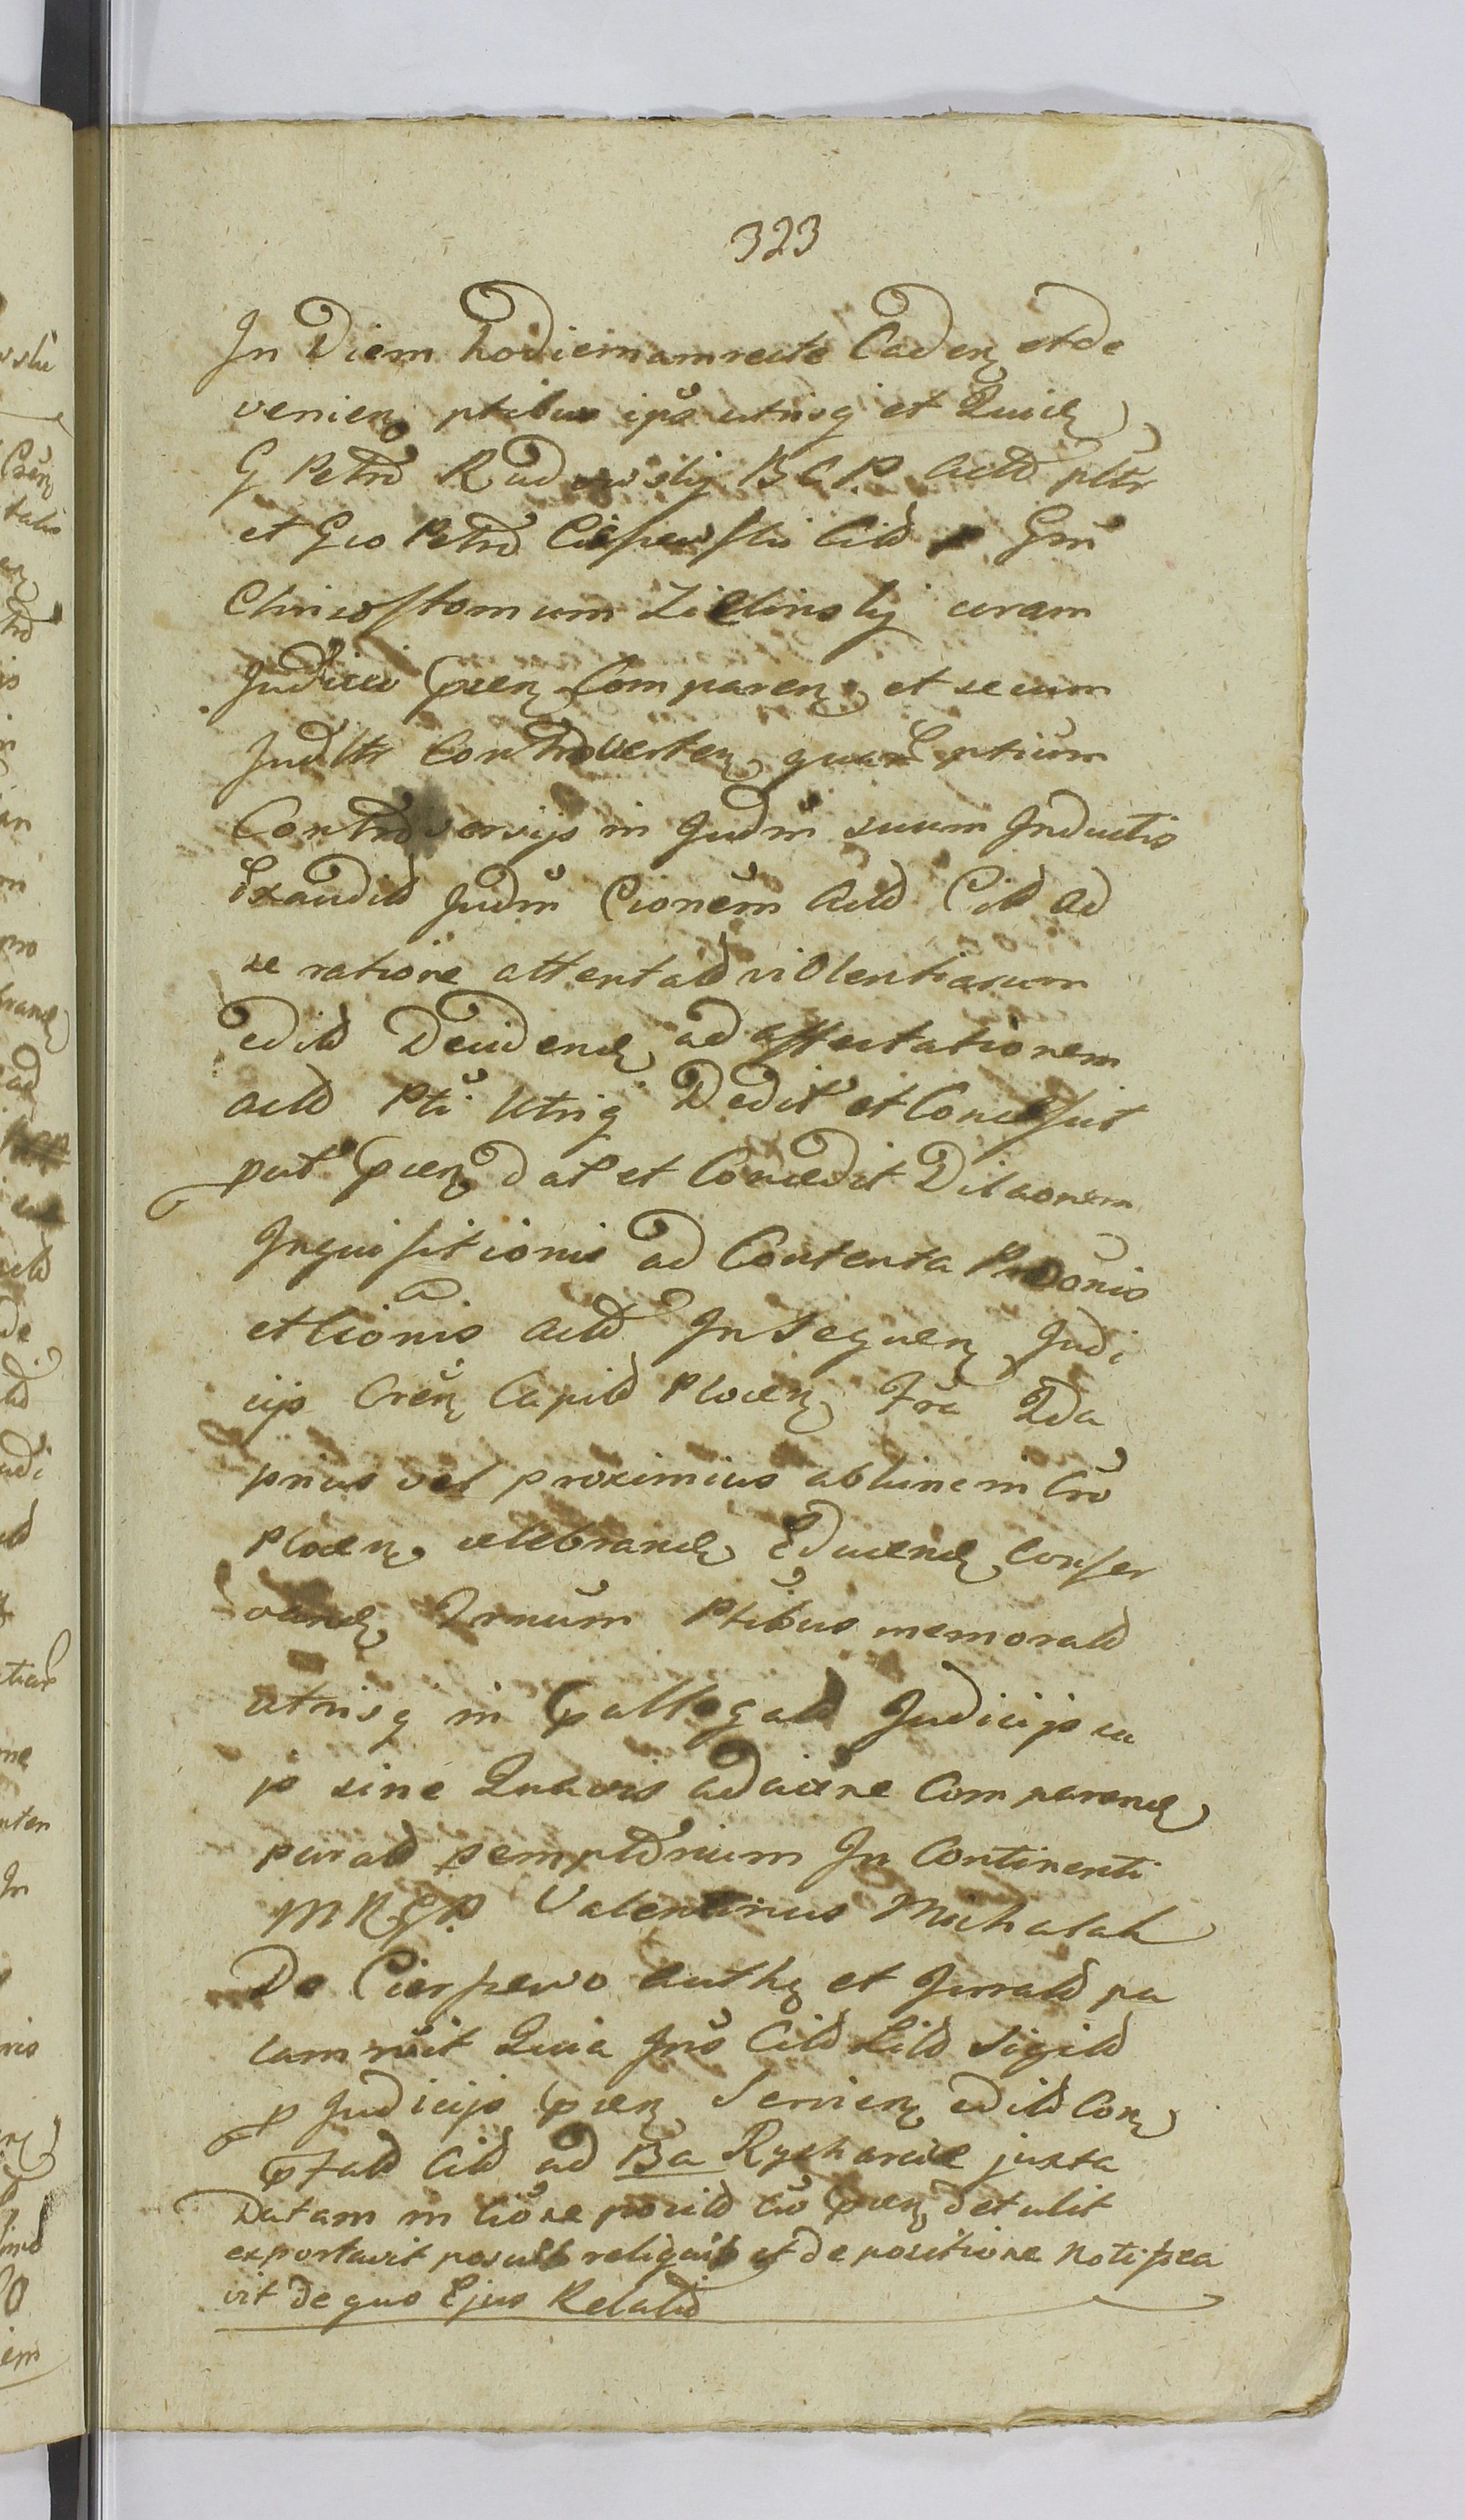 323
In Diem hodiernam recte Caden et de
venien ptibus ips utrisq et Quide
G Petro Radowskij B C P Actō pltr
et Gio Petro Cierpewski Citō p Gnu
Chrisostomum Zielinskij coram
Judicio pūen Comparen et secum
Judltr Controverten quar ptium
Controversijs in Judm suum Inductis
Exauditō Judm Cionem Actō Citō ad
se ratione attentatō violentiarum
editō Decidend ad affectationem
actō Pti Utriq Dedit et Concessit
put pūen dat et Concedit Dilaonem
Inquisitionis ad Contenta Proōnis
et Cionis Actō In Sequen Judi
cijs Cren Capitō Plocen Fra 2da
prius vel proximius abhinc in Cro
Plocen celebrand Educend conser
vand Trnum Ptibus memoratō
utrisq in pallegatō Judicijs su
is sine Quavis adacióne Comparend
paratō pemptorium In Continenti
M R S P. Valentinus Michalak
De Cierpewo Authen et Juratō pa
lam rēcit Quia Jns Citō Litō Sigilō
p Judicijs pūen Servien editō Con
pfatō Citō ad Ba Rycharcice juxta
Datam in Cióne positō Cro pūen detulit
exportavit posuit reliquit et de positione notifica
vit de quo Ejus Relatō